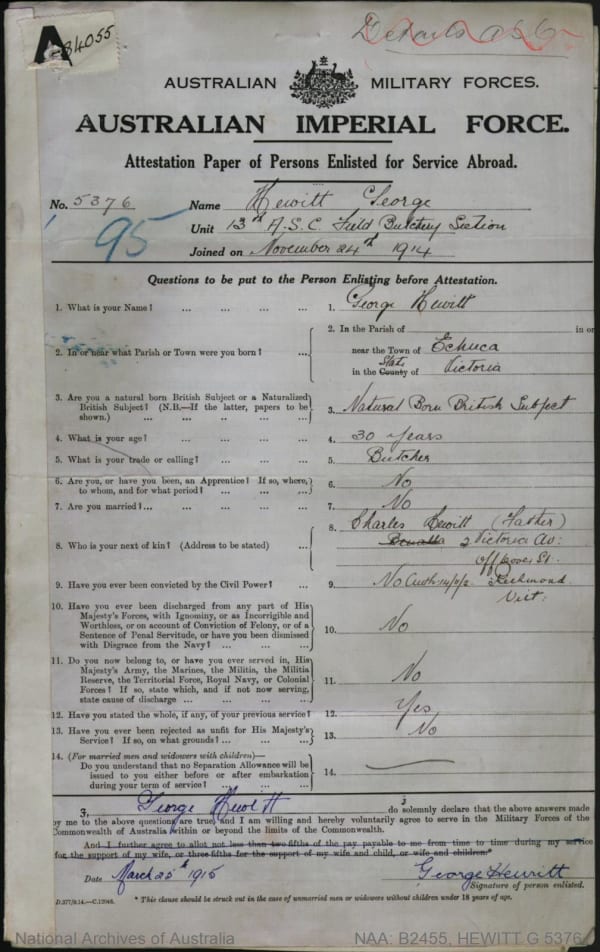 A 34055
AUSTRALIAN MILITARY FORCES.
AUSTRALIAN IMPERIAL FORCE.
Attestation Paper of Persons Enlisted for Service Abroad.
No. 5376 Name Hewitt George
95
Unit 13th A.S.C. Field Butchery Section
Joined on November 24th 1914
Questions to be put to the Person Enlisting before Attestation.
1. What is your Name? ... ... ... ... 1. George Hewitt
2. In or near what Parish or Town were you born? ... 2. In the Parish of in or
near the Town of Echuca
in the County State of Victoria
3. Are you a natural born British Subject or a Naturalized
British Subject? (N.B.—If the latter, papers to be
shown.) ... ... ... ... ... 3. Natural Born British Subject
4. What is your age? ... ... ... ... 4. 30 years
5. What is your trade or calling? ... ... ... 5. Butcher
6. Are you, or have you been, an Apprentice? If so, where,
to whom, and for what period? ... ... ... 6. No
7. Are you married?... ... ... ... ... 7. No
8. Who is your next of kin? (Address to be stated) ... 8. Charles Hewitt (Father)
Benalla 2 Victoria Av:
Richmond
Vict:
9. Have you ever been convicted by the Civil Power? ... 9. No
10. Have you ever been discharged from any part of His
Majesty's Forces, with Ignominy, or as Incorrigible and
Worthless, or on account of Conviction of Felony, or of a
Sentence of Penal Servitude, or have you been dismissed
with Disgrace from the Navy? ... ... ... 10. No
11. Do you now belong to, or have you ever served in, His
Majesty's Army, the Marines, the Militia, the Militia
Reserve, the Territorial Force, Royal Navy, or Colonial
Forces? If so, state which, and if not now serving,
state cause of discharge ... ... ... ... 11. No
12. Have you stated the whole, if any, of your previous service? 12. Yes
13. Have you ever been rejected as unfit for His Majesty's
Service? If so, on what grounds? ... ... ... 13. No
14. (For married men and widowers with children)—
Do you understand that no Separation Allowance will be
issued to you either before or after embarkation
during your term of service? ... ... ... 14.
I, George Hewitt do solemnly declare that the above answers made
by me to the above questions are true, and I am willing and hereby voluntarily agree to serve in the Military Forces of the
Commonwealth of Australia within or beyond the limits of the Commonwealth.
And I further agree to allot not less than two-fifths of the pay payable to me from time to time during my service
for the support of my wife, or three-fifths for the support of my wife and child, or wife and children.*
Date March 25th 1915 George Hewitt
Signature of person enlisted.
D.377/9.14.—C.12046. * This clause should be struck out in the case of unmarried men or widowers without children under 18 years of age.
National Archives of Australia NAA: B2455, HEWITT G 5376